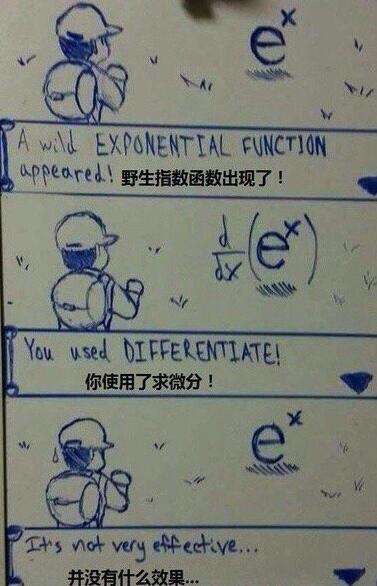 e^x
A wild EXPONENTIAL FUNCTION
appeared! 野生指数函数出现了！
d/dx (e^x)
You used DIFFERENTIATE!
你使用了求微分！
e^x
It's not very effective...
并没有什么效果...